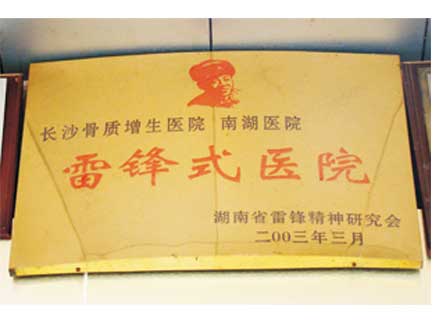 长沙骨质增生医院 南湖医院
雷锋式医院
湖南省雷锋精神研究会
二00三年三月